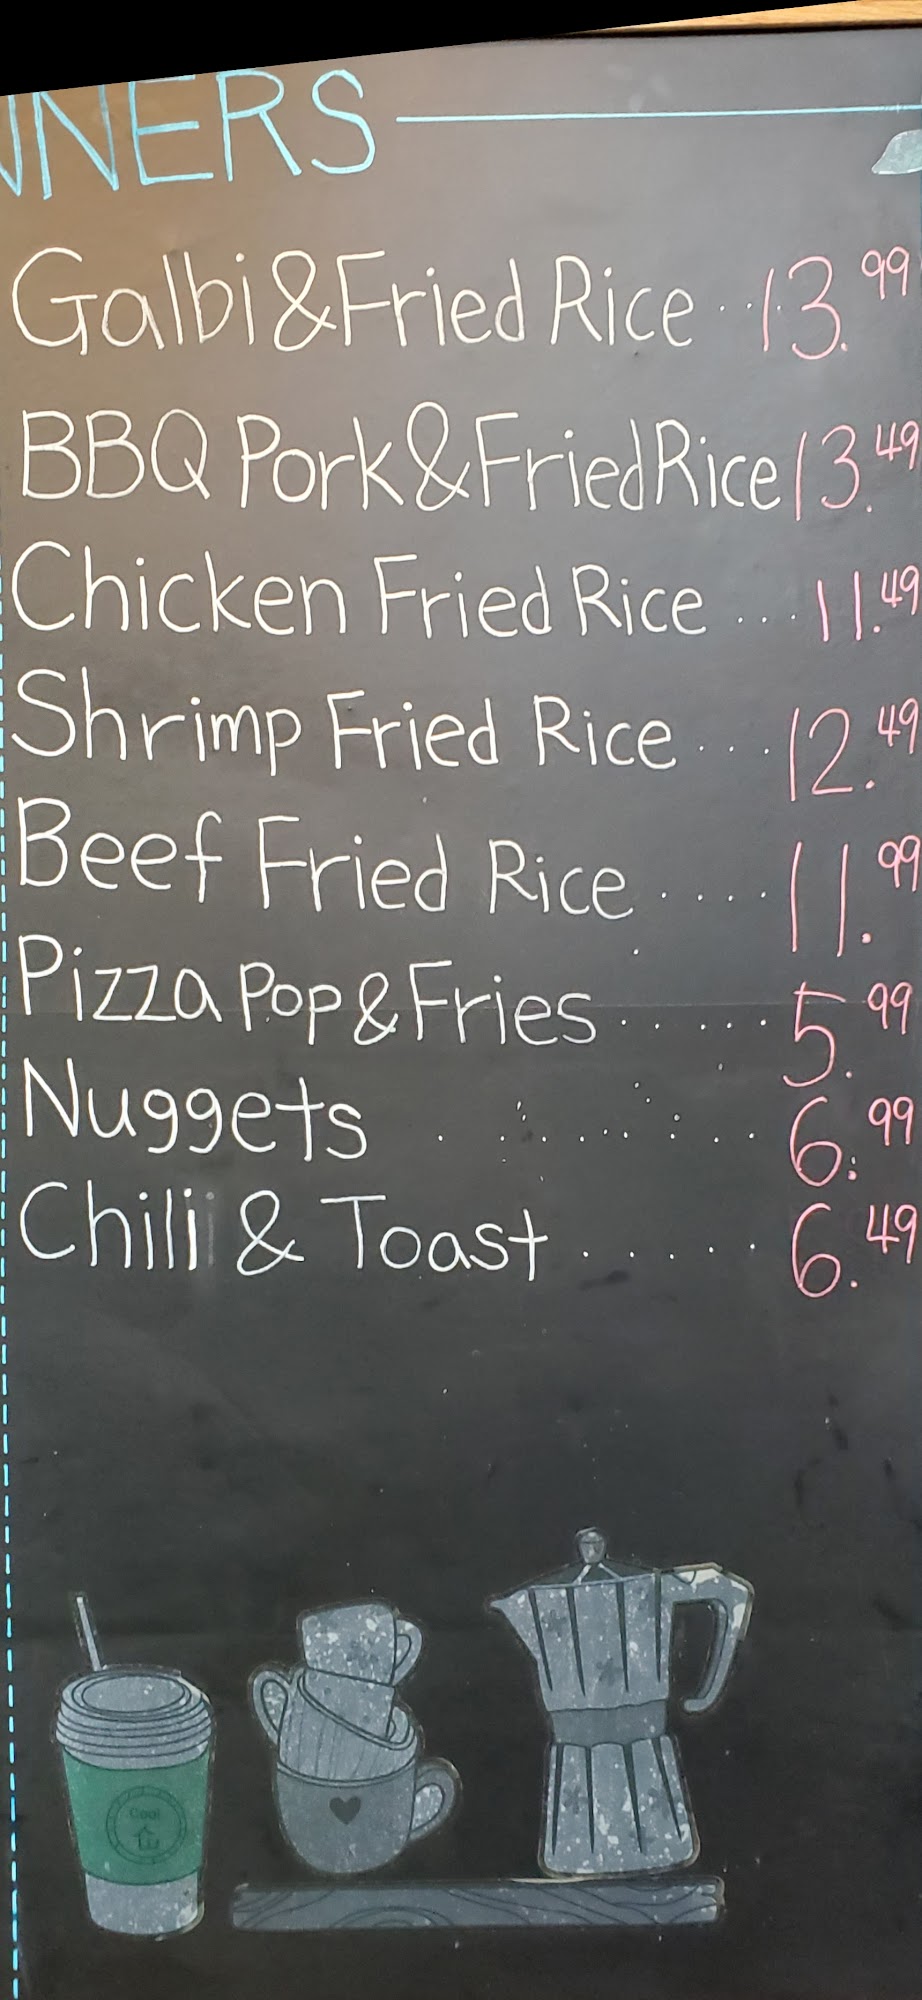 NNERS
Galbi & Fried Rice ... 13.99
BBQ Pork & Fried Rice 13.49
Chicken Fried Rice ... 11.49
Shrimp Fried Rice ... 12.49
Beef Fried Rice .... 11.99
Pizza Pop & Fries ...... 5.99
Nuggets ......... 6.99
Chili & Toast ...... 6.49
Cool